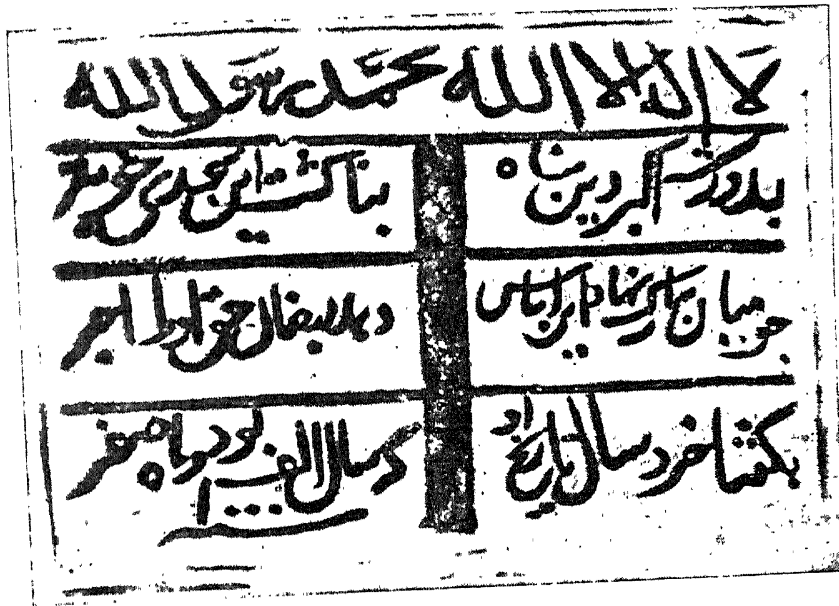 لا اله الا الله محمد رسول الله
بدور شه اکبر دین پناه
بنا گشت این مسجدی خوبتر
نهاد این اساس
حق او را اجر
بگفتا خرد سال تاریخ او
که سال الف بود و ماه صفر
۱۰۰۰